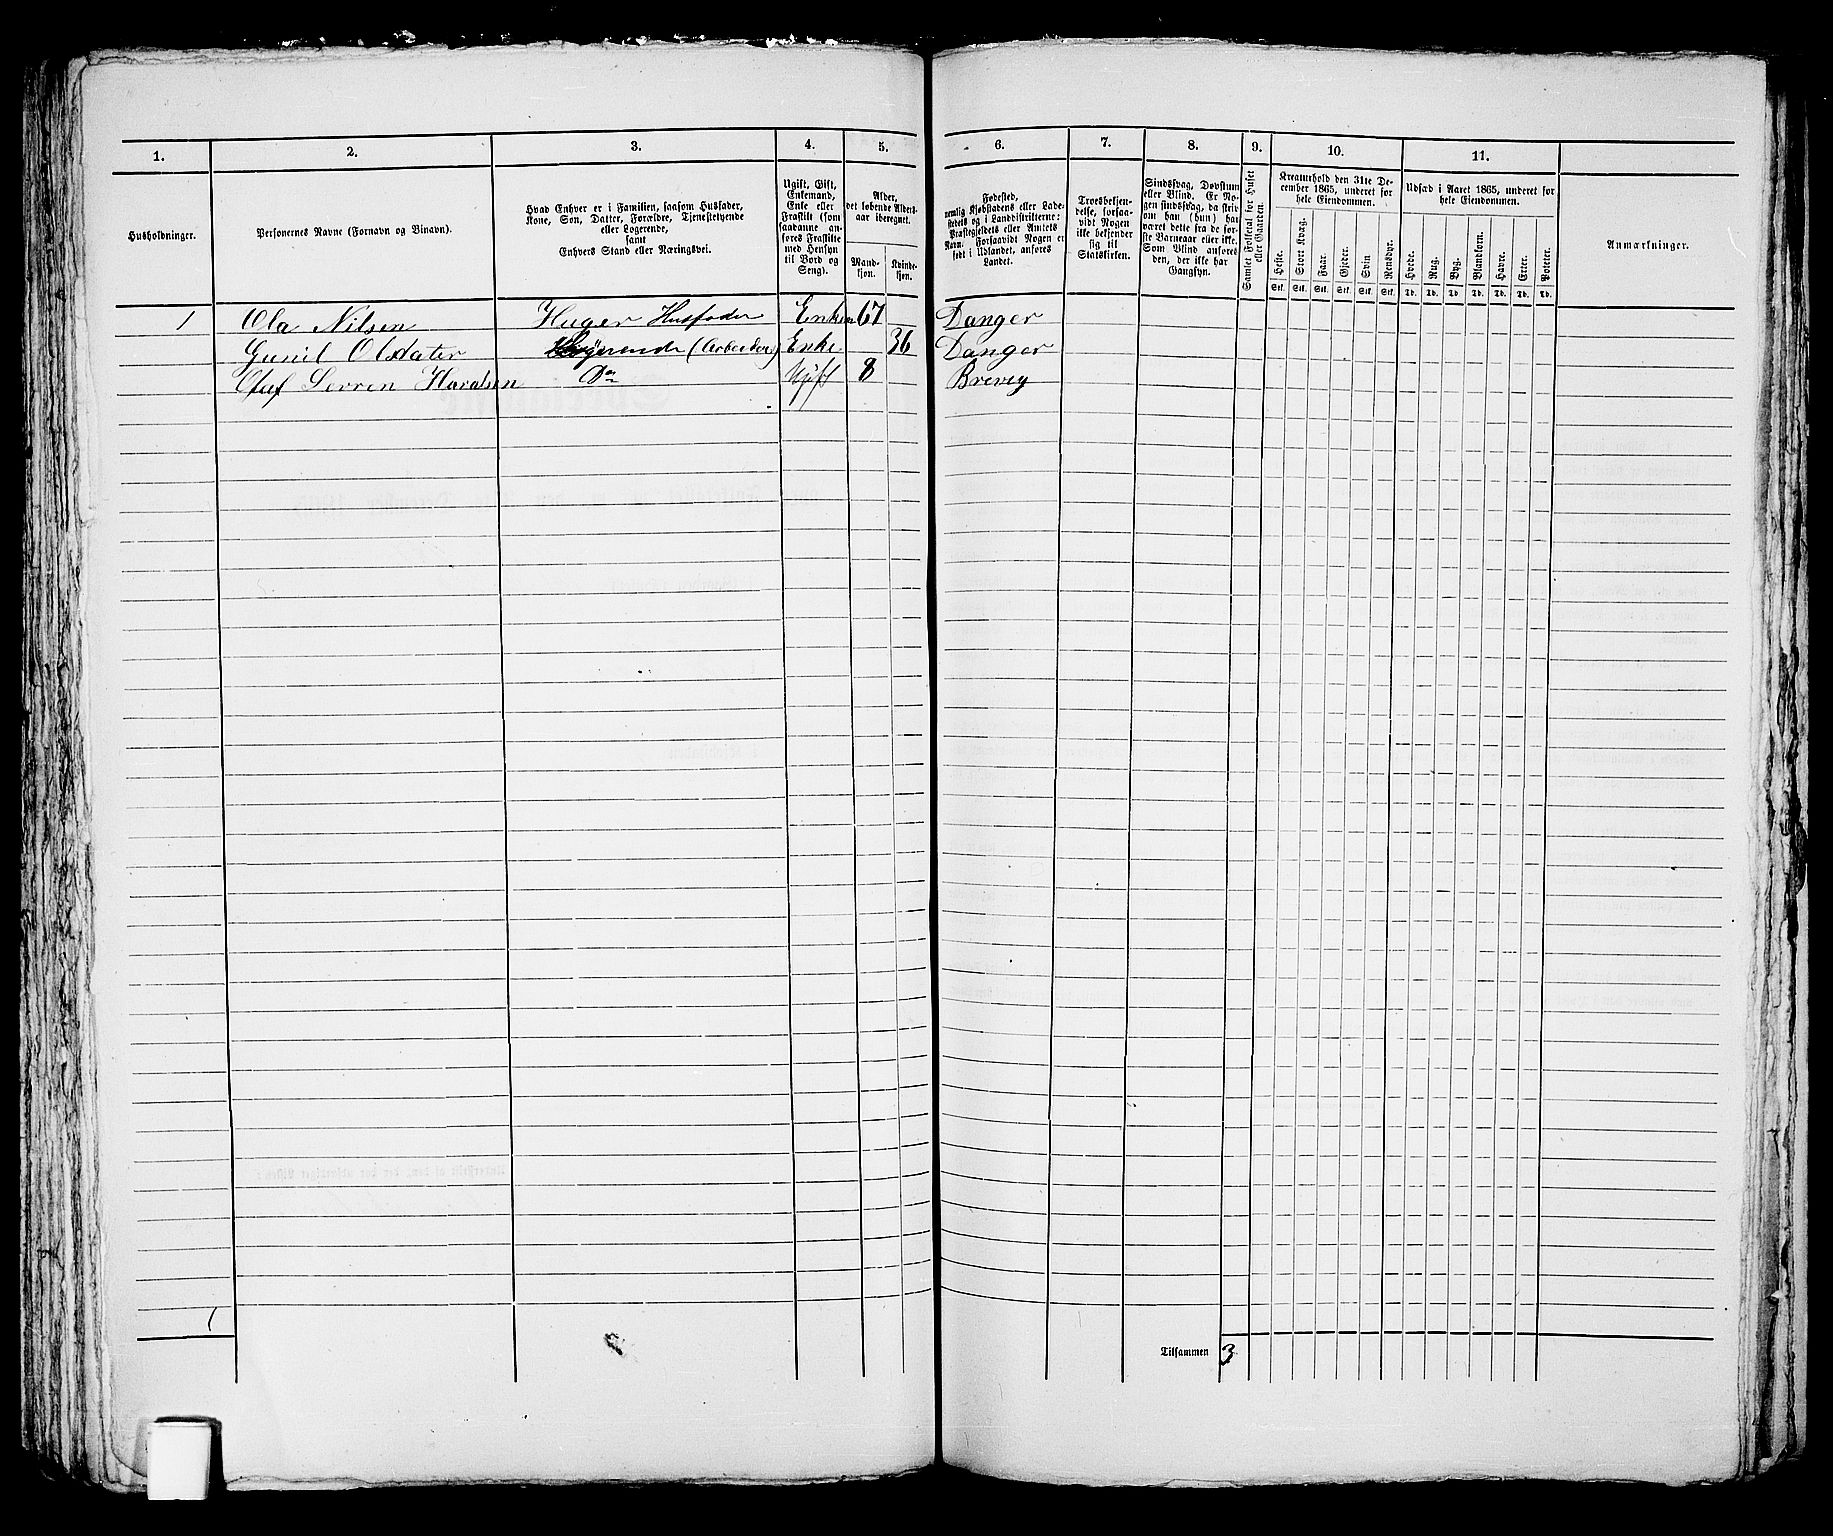 1. 2. 3. 4. 5. 6. 7. 8. 9. 10. 11.
Husholdninger.
Personernes Navne (Fornavn og Binavn).
Hvad Enhver er i Familien, saasom Husfader,
Kone, Søn, Datter, Forældre, Tjenestetyende
eller Logerende,
samt
Enhvers Stand eller Næringsvei.
Ugift, Gift,
Enkemand,
Enke eller
Fraskilt (som
saadanne an-
føres Fraskilte
med Hensyn
til Bord og
Seng).
Alder,
det løbende Alders-
aar iberegnet.
Mand-
kjøn.
Kvinde-
kjøn.
Fødested,
nemlig Kjøbstadens eller Lade-
stedets og i Landdistrikterne:
Præstegjeldets eller Amtets
Navn. Forsaavidt Nogen er
født i Udlandet, anføres
Landet.
Troesbekjen-
delse, forsaa-
vidt Nogen
ikke bekjender
sig til
Statskirken.
Sindssvag, Døvstum
eller Blind. Er No-
gen sindssvag, da skriv
om han (hun) har
været dette fra de før-
ste Barneaar eller ikke.
Som Blind anføres
den, der ikke har
Gangsyn.
Samlet Folketal for Huset
eller Gaarden.
Kreaturhold den 31te De-
cember 1865, underet for
hele Eiendommen.
Heste. Stort Kvæg. Faar. Gjeder. Svin Rensdyr.
Stk. Stk. Stk. Stk. Stk. Stk.
Udsæd i Aaret 1865, underet for
hele Eiendommen.
Hvede. Rug. Byg. Blandkorn. Havre. Erter. Poteter.
Td. Td. Td. Td. Td. Td. Td.
Anmærkninger.
1 Ola Nilsen Huger Husfader Enkem 67 Danger
Gunil Olsdater Logerende (Arbeider) Enke 36 Danger
Olaf Serren Haralsen Do Ugift 8 Brevig
1
Tilsammen 3